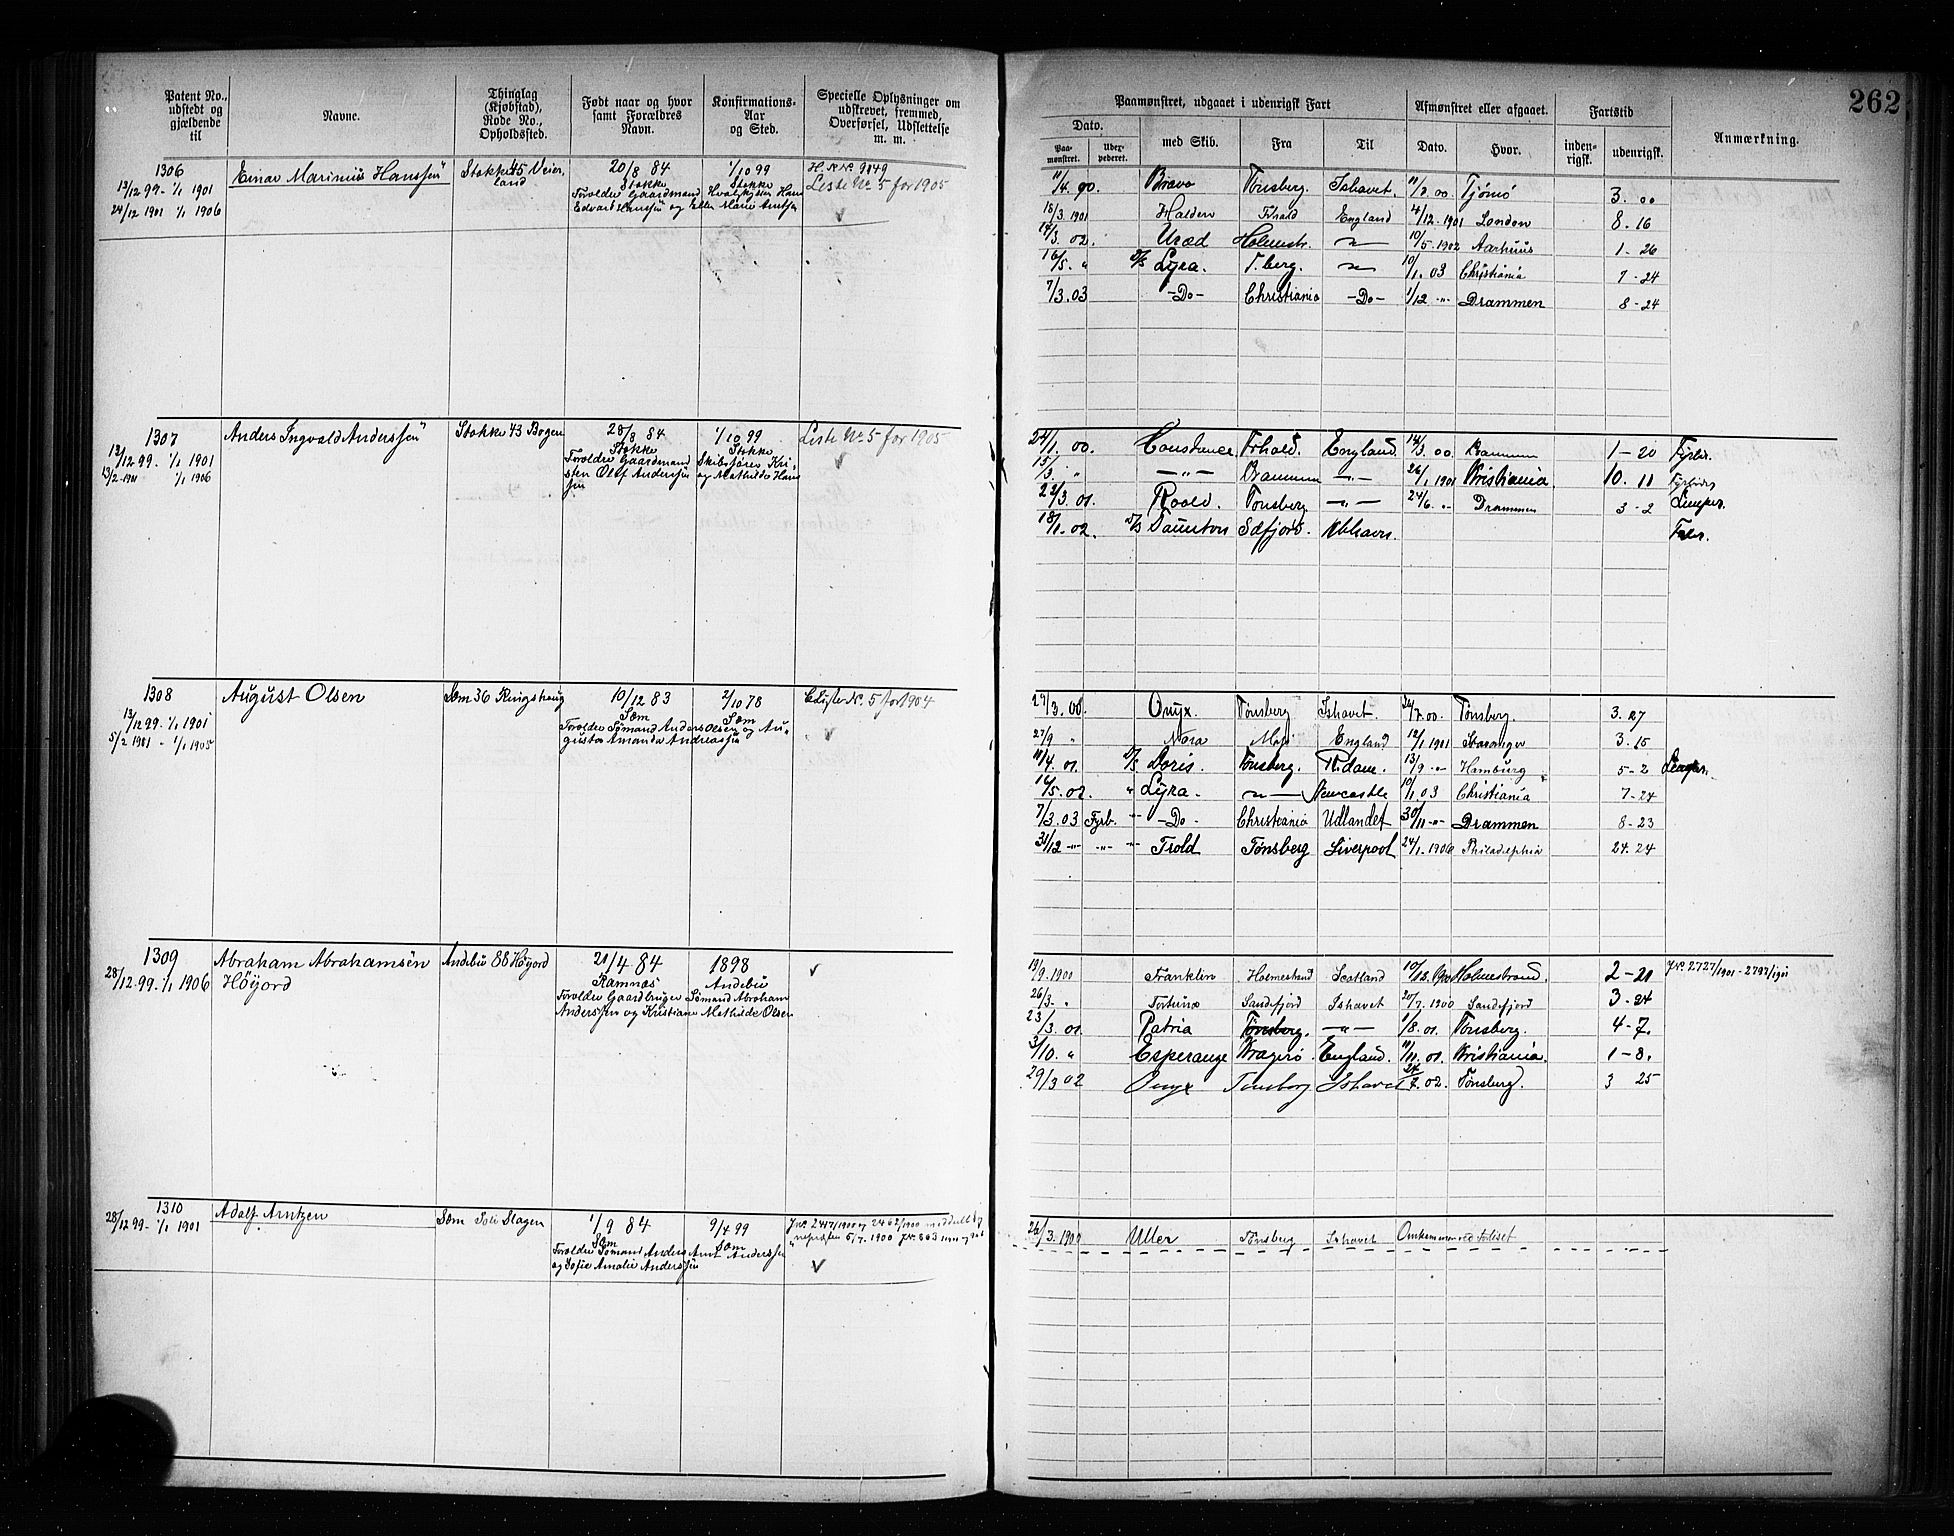 Patent No., udstedt og gjældende til
Navne.
Thinglag (Kjøbstad), Rode No., Opholdssted.
Født naar og hvor samt Forældres Navn.
Konfirmations-Aar og Sted.
Specielle Oplysninger om udskrevet, fremmed, Overførsel, Udslettelse m. m.
1306
13/12 99 - 1/1 1901
24/12 1901 1/1 1906
Einar Marinius Hanssen
Stokke 45 Veierland
20/8 84
Stokke
Forældre Gaardmand
Edvard Hanssen og Ellen Marie Arntsen
1/10 99
Stokke
H. R. No. 9849
Liste No 5 for 1905
1307
13/12 99. - 1/1 1901
13/2 1901 1/1 1906
Anders Ingvald Anderssen
Stokke 43 Bogen
28/8 84
Stokke
Forældre Gaardmand
1/10 99
Stokke
og Mathilde Hans
sen
Liste No 5 for 1905
1308
13/12 99. 1/1 1901
5/2 1901 - 1/1 1905
August Olsen
Sem 36 Ringshaug
10/12 83
Sem
Forældre Sømand Anders Olsen og Au-
gusta Amanda Andreassen
2/10 78
Sem
Liste No. 5 for 1904
1309
28/12 99. 1/1 1906
Abraham Abrahamsen
Höyord
Andebu 88 Höyord
21/4 84
Ramnæs
Forældre Gaardbruger Sømand Abraham
Anderssen og Kristiane Mathilde Olsen
1898
Andebu
1310
28/12 99 - 1/1 1901
Adolf Arntzen
Sem Slagen
1/9 84
Sem
Forældre Sømand Anders Arnt Anderssen
og Sofie Amalie Anderssen
9/4 99
Sem
J.No. 2417/1900 og 2462/1900
262
Paamønstret, udgaaet i udenrigsk Fart
Afmønstret eller afgaaet.
Fartstid
Anmærkning.
Dato.
Paamønstret.
Udexpederet.
med Skib.
Fra
Til
Dato.
Hvor.
indenrigsk.
udenrigsk.
11/4. 90. Bravo Tønsberg. Ishavet. 11/8. 00. Tjømö 3. 00
18/3. 1901 Halden England 4/12. 1901 London 8. 16
14/3. 02. Uræd Holmestr. 10/5. 1902 Aarhuus 1 - 26
16/5. " D/S Lyra. T.berg. 10/1. 03 Christiania 7 - 24
7/3. 03 - Do - Christiania - Do - 1/12 -"- Drammen 8 - 24
24/1. 00. Constance Frhald. England. 14/3. 00. Drammen 1 - 20 Fyrbr.
15/3. " - " - Drammen - " - 26/1 1901 Kristiania. 10. 11 Fyrbr.
22/3. 01. Roald. Tønsberg - " - 24/6. " Drammen 3 - 2 Lemper.
18/1. 02. D/S Taunton Sdfjord. Kbhavn.
27/3. 00. Onyx. Tønsberg Ishavet. 24/7. 00. Tønsberg. 3. 27
27/9 " Nora Moss England 12/1 1901 Stavanger 3. 15
11/4. 01. D/S Doris. Tønsberg. R.dam. 13/9. " Hamburg 5 - 2 Lemper.
16/5. 02. " Lyra. Newcastle 10/1 03 Christiania 7 - 24
7/3. 03 Fyrb. - Do - Christiania Udlandet 30/11 -"- Drammen 8 - 23
31/12 -"- -"- Trold Tønsberg Liverpool 24/1. 1906 Philadelphia 24. 24
19/9. 1900 Franklin Holmestrand Scotland Holmestrand. 2 - 21 J.No. 2727/1901 -
26/3. " Fortuna Sandefjord Ishavet 20/7. 1900 Sandefjord 3 - 24
23/3. 01. Patria Tønsberg. - " - 1/8. 01. Tønsberg. 4 - 7.
3/10. " Esperance Kragerö. England. 11/11. 01. Kristiania. 1 - 8.
29/3 02 Onyx Tønsberg Ishavet 24/7. 02. Tønsberg. 3 25
26/3. 1900 Uller Tönsberg Ishavet Omkommen ved Forliset